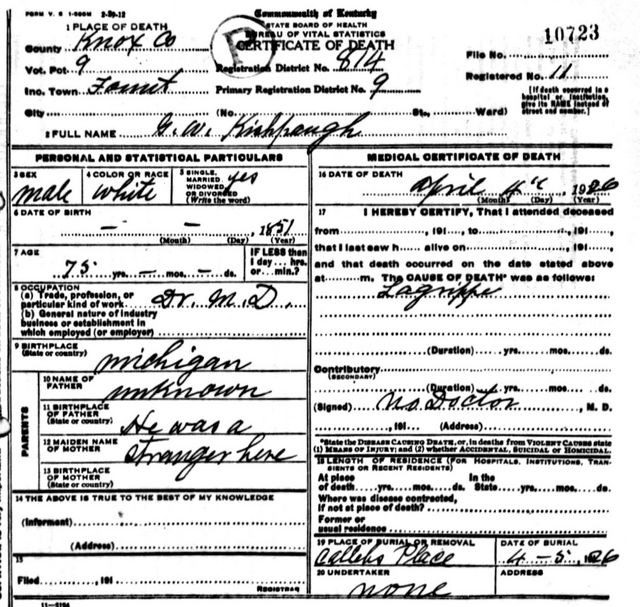 FORM V. S 1-500M 2-29-12
Commonwealth of Kentucky
STATE BOARD OF HEALTH
BUREAU OF VITAL STATISTICS
CERTIFICATE OF DEATH
1 PLACE OF DEATH
County Knox Co
Vot. Pct 9 Registration District No. 814
Inc. Town Primary Registration District No. 9
City (No. St., Ward)
File No. 10723
Registered No. 11
[If death occurred in a hospital or institution, give its NAME instead of street and number.]
2 FULL NAME G. W. Kishpaugh
PERSONAL AND STATISTICAL PARTICULARS
3 SEX male
4 COLOR OR RACE white
5 SINGLE, MARRIED, WIDOWED OR DIVORCED (Write the word) yes
6 DATE OF BIRTH – – , 1851
(Month) (Day) (Year)
7 AGE 75 yrs. – mos. – ds.
IF LESS than 1 day... hrs. or min.?
8 OCCUPATION
(a) Trade, profession, or particular kind of work Dr. M.D.
(b) General nature of industry business or establishment in which employed (or employer)
9 BIRTHPLACE (State or country) michigan
PARENTS
10 NAME OF FATHER unknown
11 BIRTHPLACE OF FATHER (State or country) He was a
12 MAIDEN NAME OF MOTHER Stranger here
13 BIRTHPLACE OF MOTHER (State or country)
14 THE ABOVE IS TRUE TO THE BEST OF MY KNOWLEDGE
(Informant)
(Address)
15
Filed , 191
REGISTRAR
11-5194
MEDICAL CERTIFICATE OF DEATH
16 DATE OF DEATH April 4th, 1926
(Month) (Day) (Year)
17 I HEREBY CERTIFY, That I attended deceased
from , 191 , to , 191 ,
that I last saw h alive on , 191 ,
and that death occurred on the date stated above
at m. The CAUSE OF DEATH* was as follows:
Lagrippe
(Duration) yrs. mos. ds.
Contributory
(SECONDARY)
(Duration) yrs. mos. ds.
(Signed) no Doctor , M. D.
, 191 (Address)
*State the DISEASE CAUSING DEATH, or, in deaths from VIOLENT CAUSES state (1) MEANS OF INJURY; and (2) whether ACCIDENTAL, SUICIDAL or HOMICIDAL.
18 LENGTH OF RESIDENCE (FOR HOSPITALS, INSTITUTIONS, TRANSIENTS OR RECENT RESIDENTS)
At place of death yrs. mos. ds. In the State yrs. mos. ds.
Where was disease contracted, if not at place of death?
Former or usual residence
19 PLACE OF BURIAL OR REMOVAL Place
DATE OF BURIAL 4–5, 1926
20 UNDERTAKER none
ADDRESS